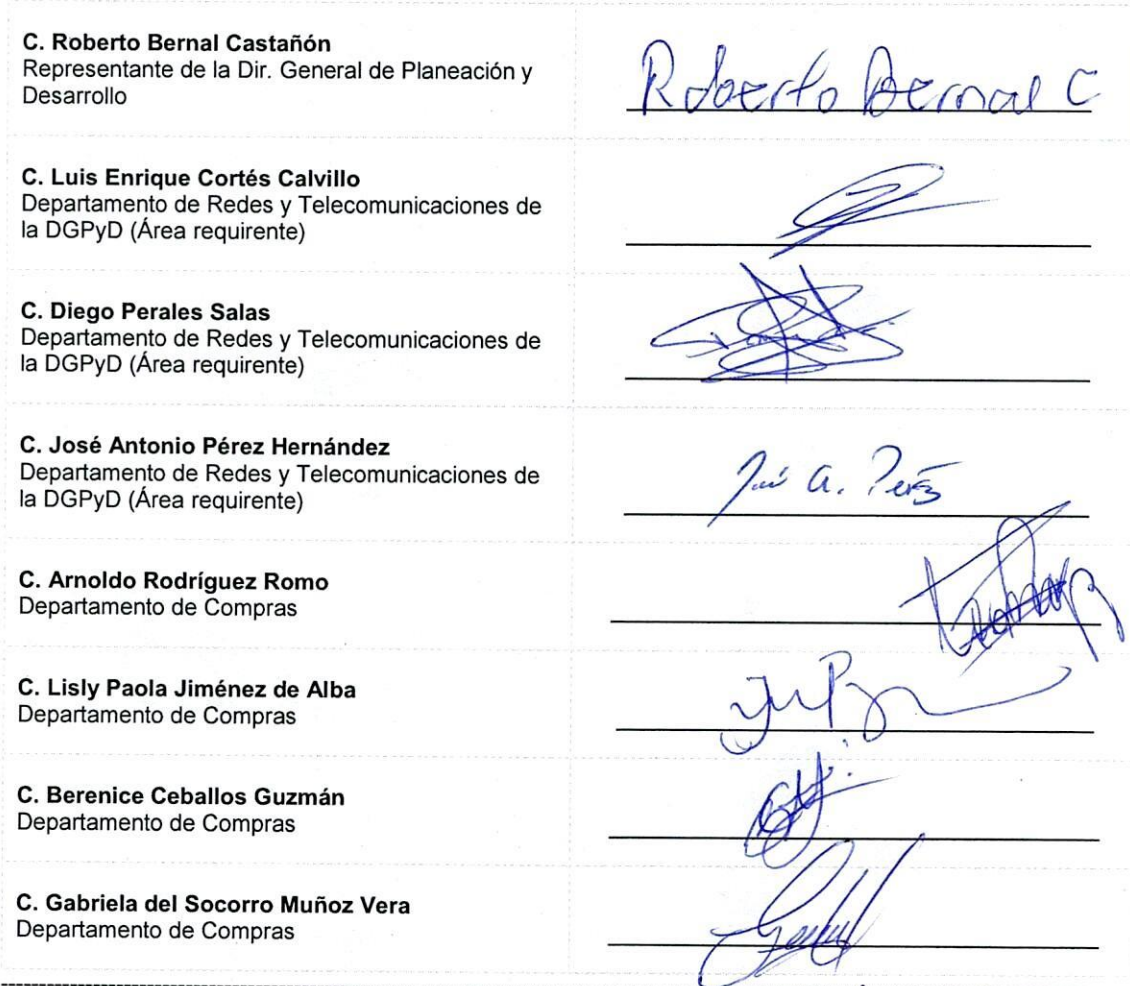 C. Roberto Bernal Castañón
Representante de la Dir. General de Planeación y
Desarrollo
Roberto Bernal C
C. Luis Enrique Cortés Calvillo
Departamento de Redes y Telecomunicaciones de
la DGPyD (Área requirente)
C. Diego Perales Salas
Departamento de Redes y Telecomunicaciones de
la DGPyD (Área requirente)
C. José Antonio Pérez Hernández
Departamento de Redes y Telecomunicaciones de
la DGPyD (Área requirente)
José A. Pérez
C. Arnoldo Rodríguez Romo
Departamento de Compras
C. Lisly Paola Jiménez de Alba
Departamento de Compras
C. Berenice Ceballos Guzmán
Departamento de Compras
C. Gabriela del Socorro Muñoz Vera
Departamento de Compras